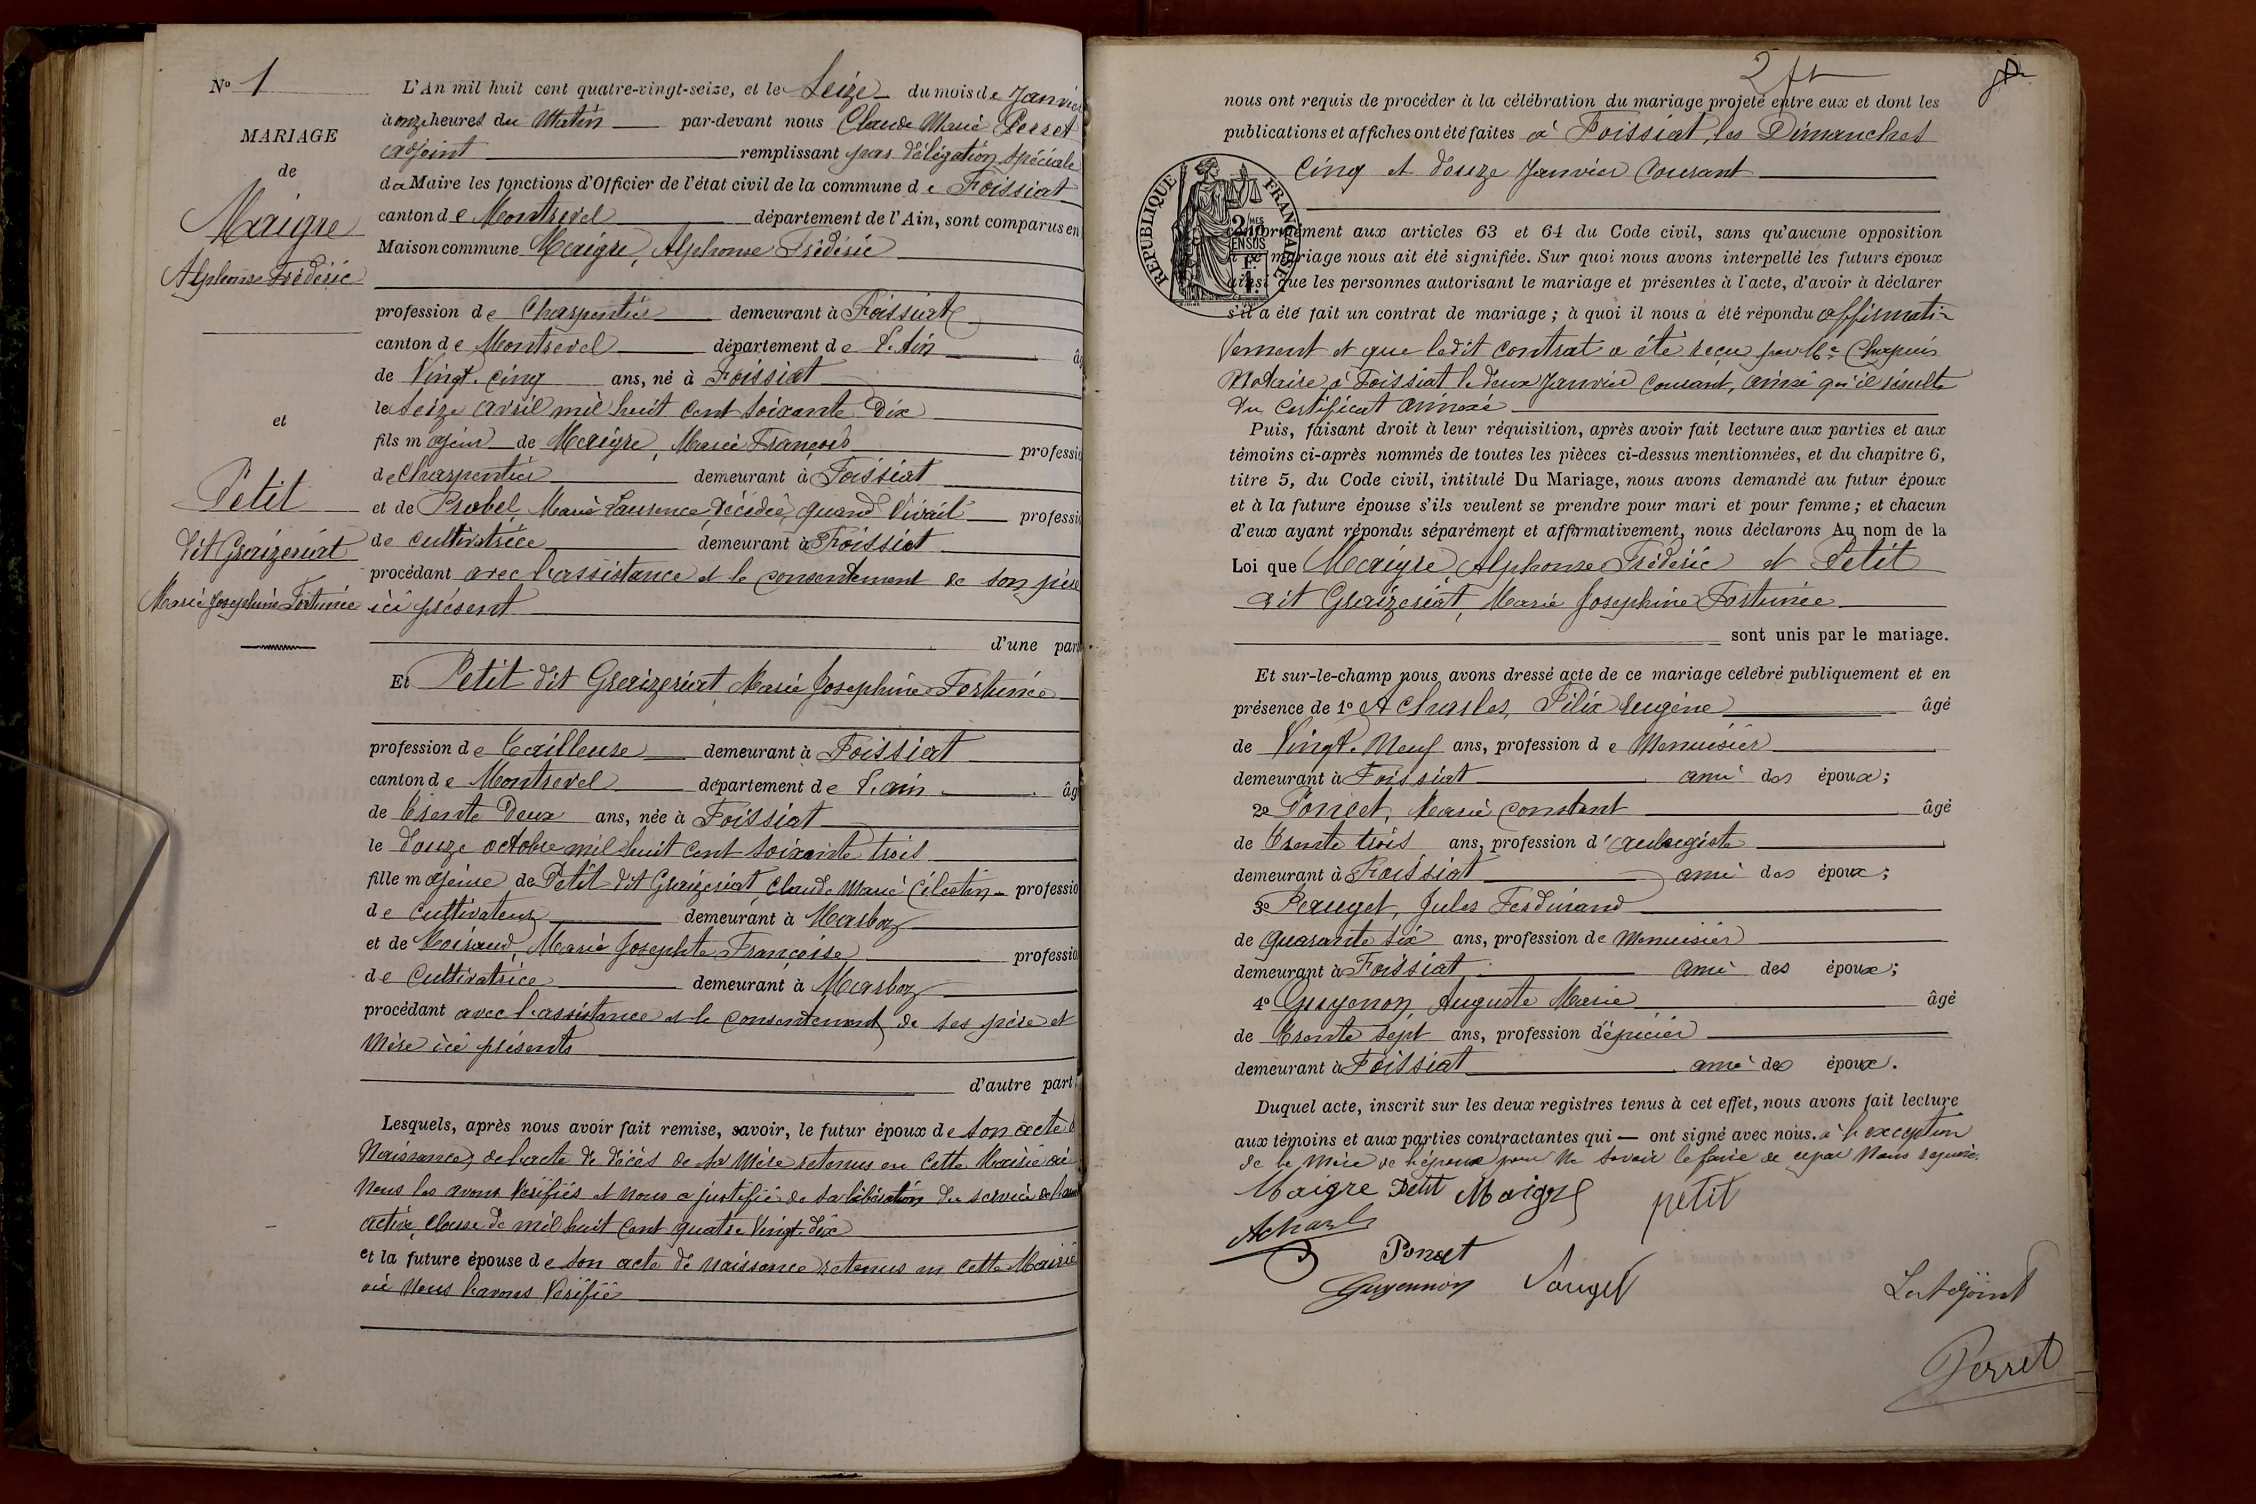 N° 1
MARIAGE
de
Maigre
Alphonse Frédéric
et
Petit
dit Graizeriat
Marie Josephine Fortunée
L'An mil huit cent quatre-vingt-seize, et le Seize du mois de Janvier
à onze heures du Matin par-devant nous Claude Marie Perret
adjoint remplissant par délégation spéciale
da Maire les fonctions d'Officier de l'état civil de la commune de Foissiat
canton de Montrevel département de l'Ain, sont comparus en
Maison commune Maigre, Alphonse Frédéric
profession de Charpentier demeurant à Foissiat
canton de Montrevel département de l'Ain âg
de Vingt-cinq ans, né à Foissiat
le Seize avril mil huit cent soixante Dix
fils majeur de Maigre, Marie François professio
de Charpentier demeurant à Foissiat
et de Probel, Marie Laurence, décédée, quand vivait professio
de cultivatrice demeurant à Foissiat
procédant avec l'assistance et le consentement de son père
ici présent
d'une part
Et Petit dit Graizeriat, Marie Josephine Fortunée
profession de tailleuse demeurant à Foissiat
canton de Montrevel département de l'ain âg
de trente Deux ans, née à Foissiat
le Douze octobre mil huit cent soixante trois
fille majeure de Petit dit Graizeriat, Claude Marie Célestin professio
de cultivateur demeurant à Marboz
et de Moiraud, Marie Josephte Françoise professio
de cultivatrice demeurant à Marboz
procédant avec l'assistance et le consentement de ses père et
Mère ici présents
d'autre part.
Lesquels, après nous avoir fait remise, savoir, le futur époux de son acte d
Naissance, de l'acte de décès de sa Mère retenus en cette Mairie où
Nous les avons Vérifiés et nous a justifié de sa libération du service de l'armée
active, classe de mil huit cent quatre Vingt-dix
et la future épouse de son acte de naissance retenus en cette Mairie
où Nous l'avons Vérifié
2 ft
nous ont requis de procéder à la célébration du mariage projeté entre eux et dont les
publications et affiches ont été faites à Foissiat, les Dimanches
Cinq et douze Janvier Courant
RÉPUBLIQUE FRANÇAISE
conformément aux articles 63 et 64 du Code civil, sans qu'aucune opposition
à ce mariage nous ait été signifiée. Sur quoi nous avons interpellé les futurs époux
ainsi que les personnes autorisant le mariage et présentes à l'acte, d'avoir à déclarer
s'il a été fait un contrat de mariage ; à quoi il nous a été répondu affirmati-
vement et que ledit contrat a été reçu par Me Chapuis
Notaire à Foissiat le deux Janvier courant, ainsi qu'il résulte
du Certificat annexé
Puis, faisant droit à leur réquisition, après avoir fait lecture aux parties et aux
témoins ci-après nommés de toutes les pièces ci-dessus mentionnées, et du chapitre 6,
titre 5, du Code civil, intitulé Du Mariage, nous avons demandé au futur époux
et à la future épouse s'ils veulent se prendre pour mari et pour femme ; et chacun
d'eux ayant répondu séparément et affirmativement, nous déclarons Au nom de la
Loi que Maigre, Alphonse Frédéric et Petit
dit Graizeriat, Marie Josephine Fortunée
sont unis par le mariage.
Et sur-le-champ nous avons dressé acte de ce mariage célébré publiquement et en
présence de 1° Acharles, Félix Eugène âgé
de Vingt-Neuf ans, profession de Menuisier
demeurant à Foissiat ami des époux ;
2° Poncet, Marie Constant âgé
de trente trois ans, profession d'aubergiste
demeurant à Foissiat ami des époux ;
3° Pauget, Jules Ferdinand
de quarante six ans, profession de Menuisier
demeurant à Foissiat ami des époux ;
4° Guyenon, Auguste Marie âgé
de trente sept ans, profession d'épicier
demeurant à Foissiat ami des époux.
Duquel acte, inscrit sur les deux registres tenus à cet effet, nous avons fait lecture
aux témoins et aux parties contractantes qui — ont signé avec nous. à l'exception
de la Mère de l'épouse pour Ne savoir le faire de ce par Nous requise.
Maigre Petit Maigre petit
Acharles
Poncet
Guyennon Pauget
L'adjoint
Perret